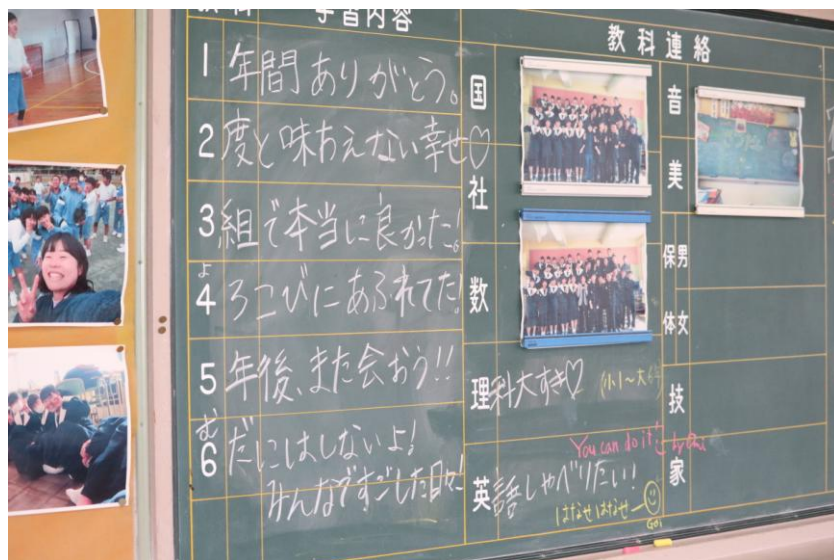 学習内容
1 年間ありがとう。
2 度と味わえない幸せ♡
3 組で本当に良かった!
よ
4 ろこびにあふれてた!
5 年後、また会おう!!
む
6 だにはしないよ!
みんなですごした日々!
教科連絡
国
社
数
理科大すき♡ (小1〜大
You can do it!
英語しゃべりたい!
はなせはなせー
Go!
音
美
保体
男
女
技
家